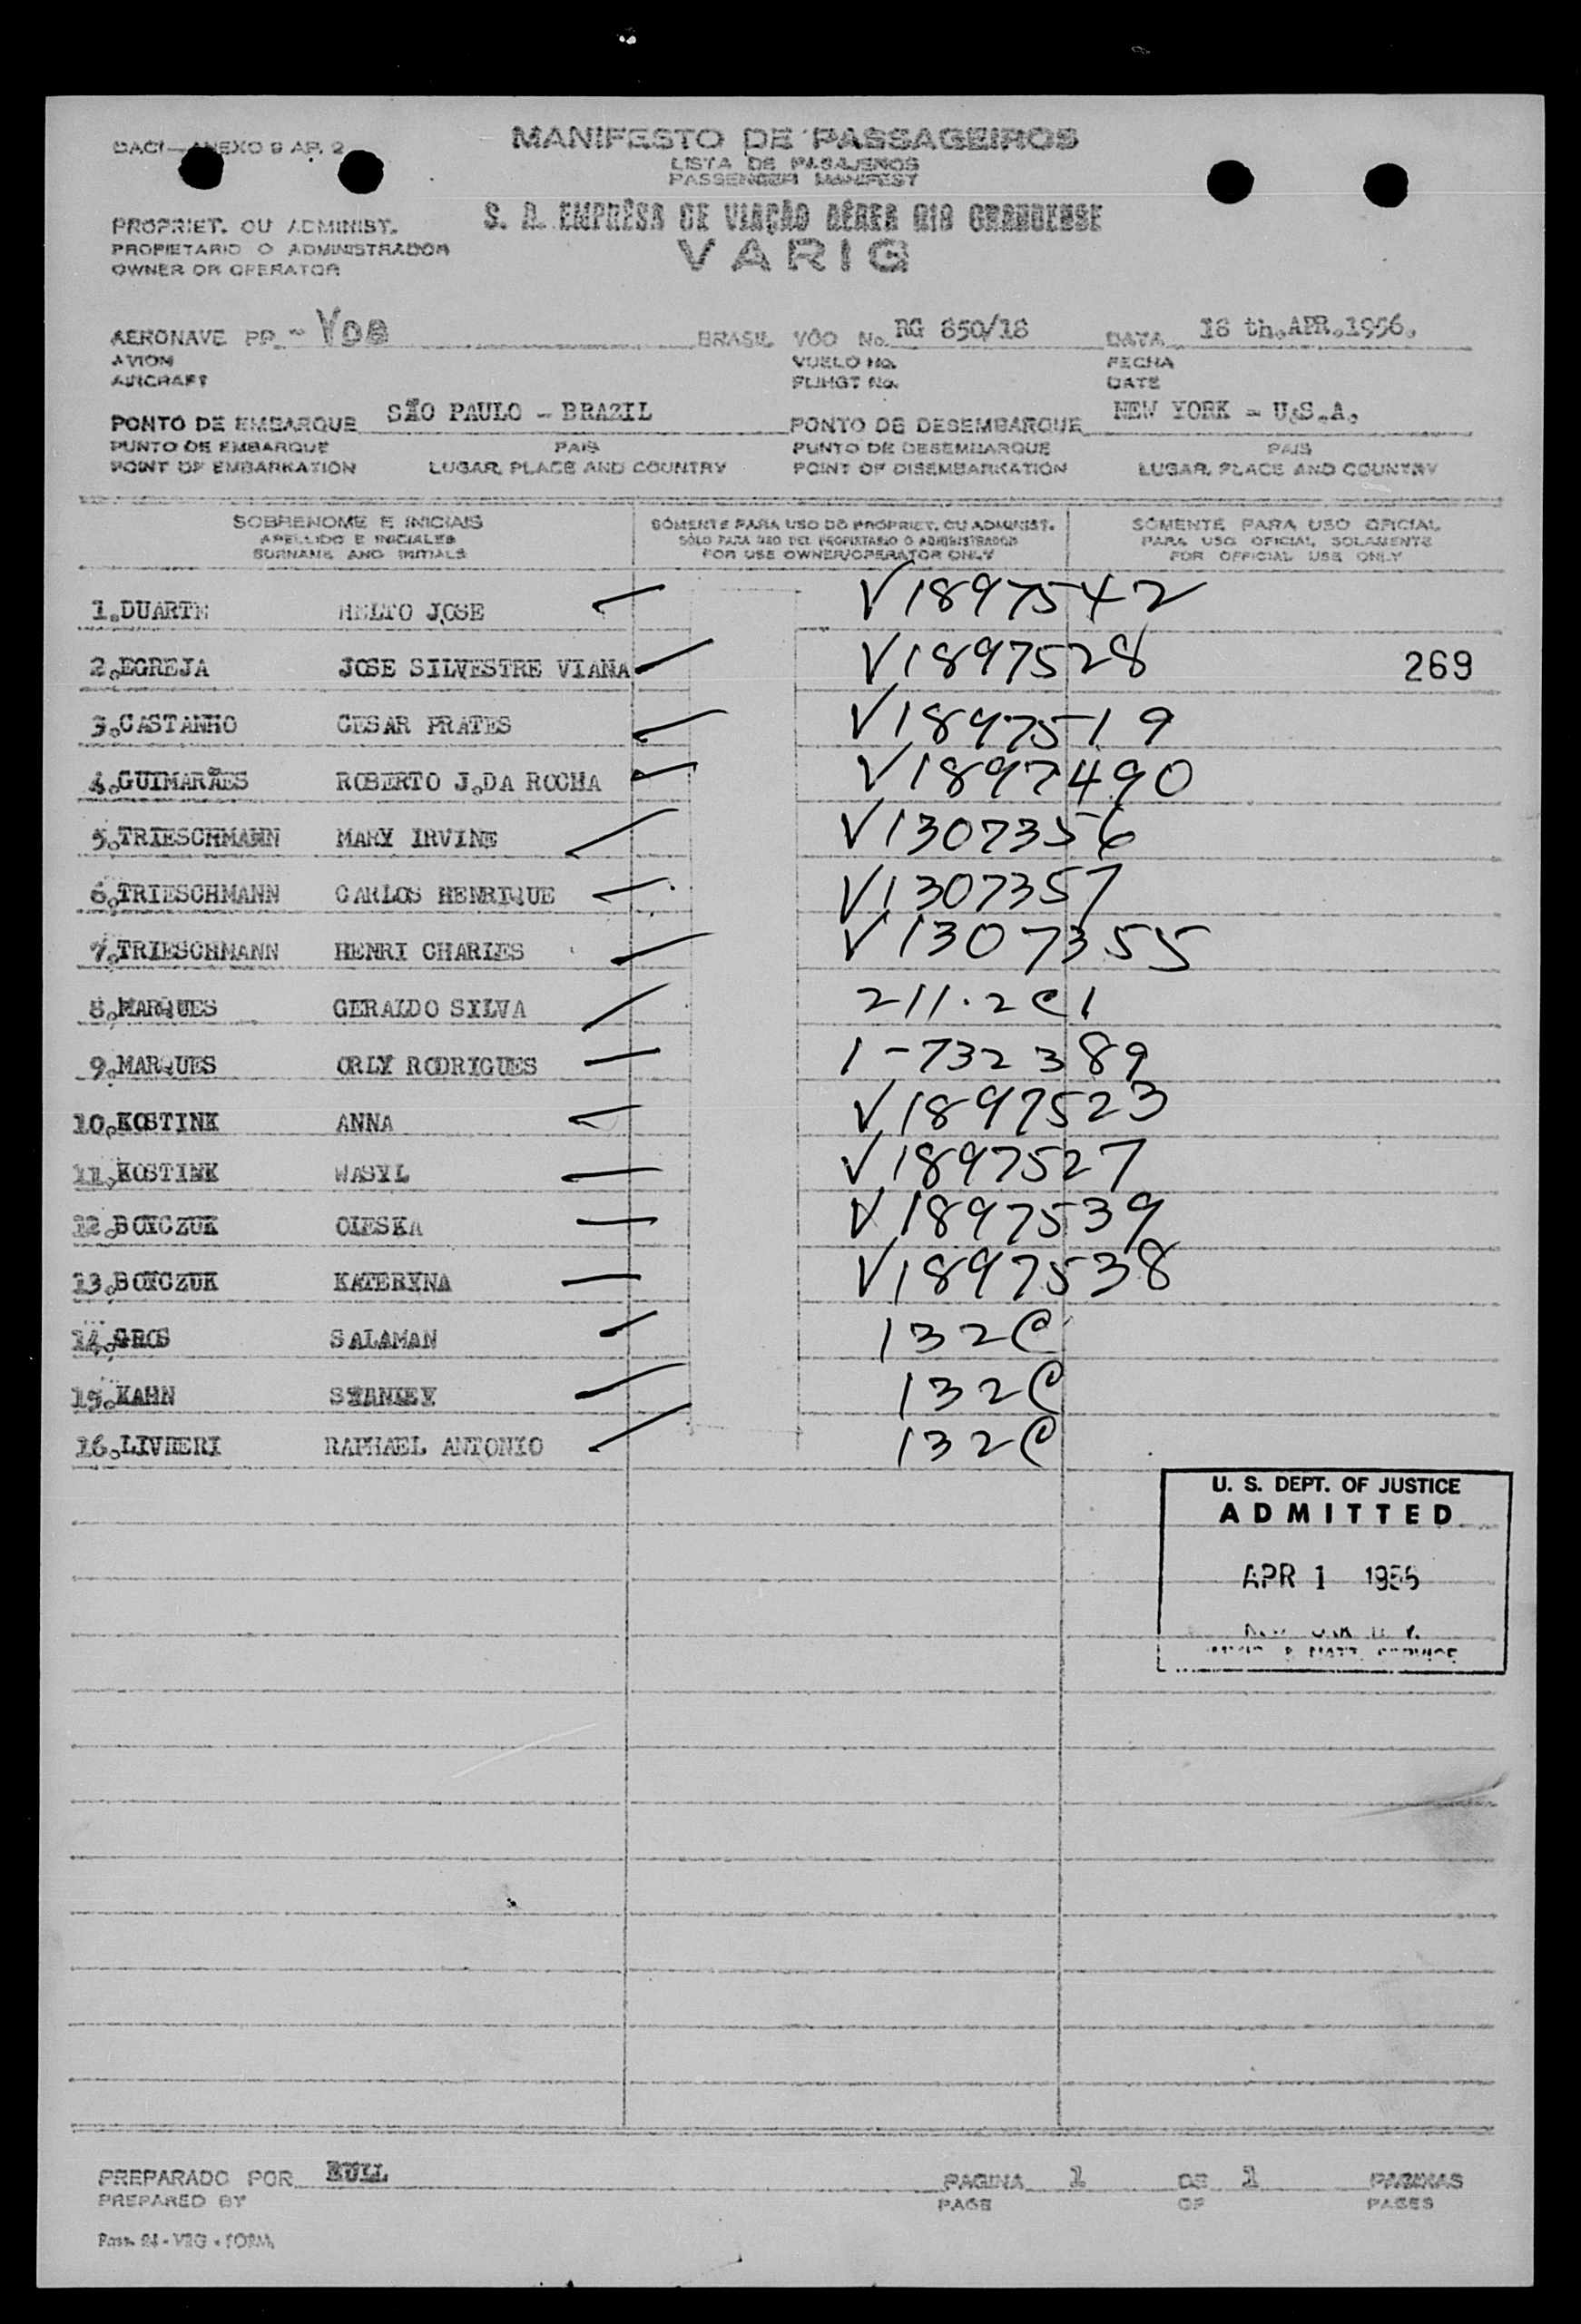 OACI — ANEXO 9 AP. 2
MANIFESTO DE PASSAGEIROS
LISTA DE PASAJEROS
PASSENGER MANIFEST
PROPRIET. OU ADMINIST.
PROPIETARIO O ADMINISTRADOR
OWNER OR OPERATOR
S. A. EMPRÊSA DE VIAÇÃO AÉREA RIO GRANDENSE
VARIG
AERONAVE PP - BRASIL VÔO No. RG 850/18 DATA 18 th.APR.1956.
AVION VUELO No. FECHA
AIRCRAFT FLIHGT No. DATE
PONTO DE EMBARQUE SÃO PAULO - BRAZIL PONTO DE DESEMBARQUE NEW YORK - U.S.A.
PUNTO DE EMBARQUE PAIS PUNTO DE DESEMBARQUE PAIS
POINT OF EMBARKATION LUGAR, PLACE AND COUNTRY POINT OF DISEMBARKATION LUGAR, PLACE AND COUNTRY
SOBRENOME E INICIAIS SÓMENTE PARA USO DO PROPRIET. OU ADMINIST. SÓMENTE PARA USO OFICIAL
APELLIDO E INICIALES SÓLO PARA USO DEL PROPIETARIO O ADMINISTRADOR PARA USO OFICIAL SOLAMENTE
SURNAME AND INITIALS FOR USE OWNER/OPERATOR ONLY FOR OFFICIAL USE ONLY
1.DUARTE HELTO JOSE V1897542
2.EGREJA JOSE SILVESTRE VIANA V1897528 269
3.CASTANHO CESAR PRATES V1897519
4.GUIMARÃES ROBERTO J.DA ROCHA V1897490
5.TRIESCHMANN MARY IRVINE V1307356
6.TRIESCHMANN CARLOS HENRIQUE V1307357
7.TRIESCHMANN HENRI CHARLES V1307355
8.MARQUES GERALDO SILVA 211.2C1
9.MARQUES ORLY RODRIGUES 1-732389
10.KOSTINK ANNA V1897523
11.KOSTINK WASYL V1897527
12.BOYCZUK OLESKA V1897539
13.BOYCZUK KATERYNA V1897538
14.GROS SALAMAN 132C
15.KAHN STANLEY 132C
16.LIVIERI RAPHAEL ANTONIO 132C
U. S. DEPT. OF JUSTICE
ADMITTED
APR 1 1956
PREPARADO POR PAGINA 1 DE 1 PAGINAS
PREPARED BY PAGE OF PAGES